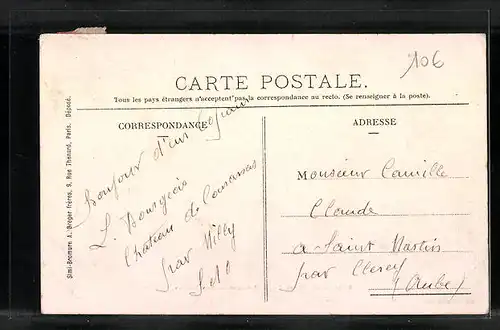 10€
CARTE POSTALE.
Tous les pays étrangers n'acceptent pas la correspondance au recto. (Se renseigner à la poste).
CORRESPONDANCE
Bonjour d'un
L. Bourgeois
Château de Courances
par Milly
S et O
ADRESSE
Monsieur Camille
Claude
a Saint Martin
par Clerey
(Aube)
Simi-Bromure A. Breger frères, 9, Rue Thénard, Paris. Déposé.